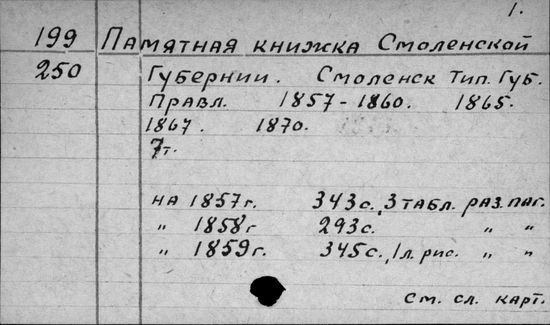 1.
199 Памятная книжка Смоленской
250 Губернии. Смоленск Тип. Губ.
Правл. 1857-1860. 1865.
1867. 1870.
7т.
на 1857г. 343с., 3 табл. раз. паг.
„ 1858г 293с. „ „
„ 1859г. 345с., 1л. рис. „ „
См. сл. карт.